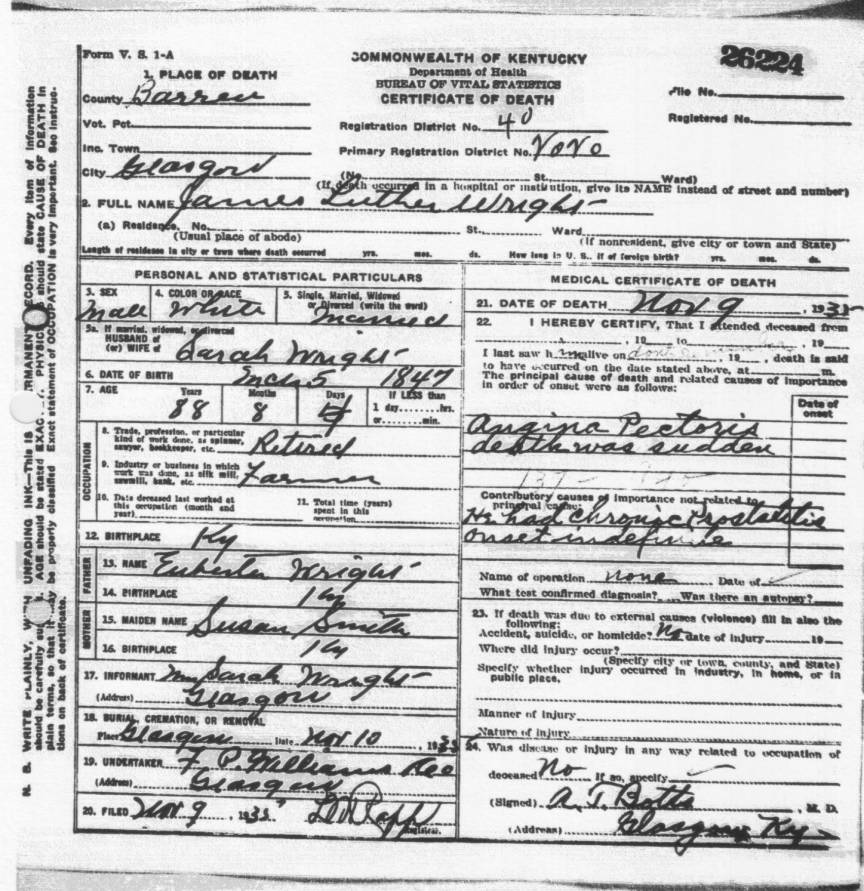 Form V. S. 1-A
COMMONWEALTH OF KENTUCKY
Department of Health
BUREAU OF VITAL STATISTICS
CERTIFICATE OF DEATH
26224
File No.
Registered No.
1. PLACE OF DEATH
County Barren
Vot. Pct.
Inc. Town
City Glasgow
Registration District No. 40
Primary Registration District No.
(No. St. Ward)
(If death occurred in a hospital or institution, give its NAME instead of street and number)
2. FULL NAME James Luther Wright
(a) Residence, No. St., Ward
(Usual place of abode) (If nonresident, give city or town and State)
Length of residence in city or town where death occurred yrs. mos. ds. How long in U. S., if of foreign birth? yrs. mos. ds.
PERSONAL AND STATISTICAL PARTICULARS
3. SEX
Male
4. COLOR OR RACE
White
5. Single, Married, Widowed
or Divorced (write the word)
Married
5a. If married, widowed, or divorced
HUSBAND of
(or) WIFE of Sarah Wright
6. DATE OF BIRTH Mch 5 1847
7. AGE Years Months Days If LESS than
88 8 4 1 day hrs.
or min.
OCCUPATION
8. Trade, profession, or particular
kind of work done, as spinner,
sawyer, bookkeeper, etc. Retired
9. Industry or business in which
work was done, as silk mill,
sawmill, bank, etc. Farmer
10. Date deceased last worked at
this occupation (month and
year)
11. Total time (years)
spent in this
occupation
12. BIRTHPLACE Ky
FATHER
13. NAME Wright
14. BIRTHPLACE Ky
MOTHER
15. MAIDEN NAME Susan Smith
16. BIRTHPLACE Ky
17. INFORMANT Mrs Sarah Wright
(Address) Glasgow
18. BURIAL, CREMATION, OR REMOVAL
Place Glasgow Date Nov 10, 1935
19. UNDERTAKER F. P. Williams
(Address) Glasgow
20. FILED Nov 9, 1935 Rapp
Registrar.
MEDICAL CERTIFICATE OF DEATH
21. DATE OF DEATH Nov 9, 1935
22. I HEREBY CERTIFY, That I attended deceased from
, 19 to , 19
I last saw him alive on dont remember, 19 , death is said
to have occurred on the date stated above, at m.
The principal cause of death and related causes of importance
in order of onset were as follows:
Date of
onset
Angina Pectoris
death was sudden
Contributory causes of importance not related to
principal cause:
He had chronic Prostatitis
onset indefinite
Name of operation none Date of
What test confirmed diagnosis? Was there an autopsy?
23. If death was due to external causes (violence) fill in also the
following:
Accident, suicide, or homicide? No date of injury 19
Where did injury occur?
(Specify city or town, county, and State)
Specify whether injury occurred in industry, in home, or in
public place.
Manner of injury
Nature of injury
24. Was disease or injury in any way related to occupation of
deceased No If so, specify
(Signed) A. T. Botts, M. D.
(Address) Glasgow Ky
N. B. WRITE PLAINLY, WITH UNFADING INK—This IS RMANENT RECORD. Every item of information
should be carefully AGE should be stated EXAC PHYSIC should state CAUSE OF DEATH in
plain terms, so that it may be properly classified Exact statement of OCCUPATION is very important. See instruc-
tions on back of certificate.